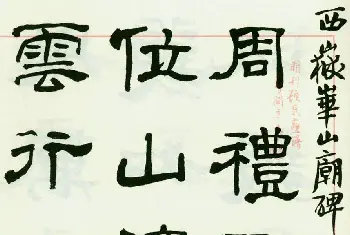 西嶽華山廟碑
周禮
位山
雲行